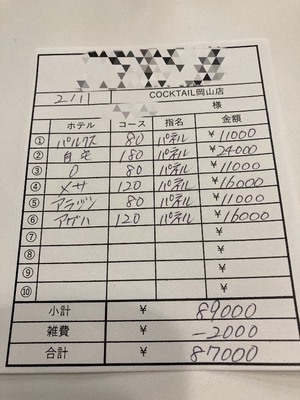 2/11 COCKTAIL岡山店
様
ホテル コース 指名 金額
① パルクス 80 パネル ¥11000
② 自宅 180 パネル ¥24000
③ D 80 パネル ¥11000
④ メサ 120 パネル ¥16000
⑤ アラジン 80 パネル ¥11000
⑥ アゲハ 120 パネル ¥16000
⑦ ¥
⑧ ¥
⑨ ¥
⑩ ¥
小計 ¥ 89000
雑費 ¥ -2000
合計 ¥ 87000